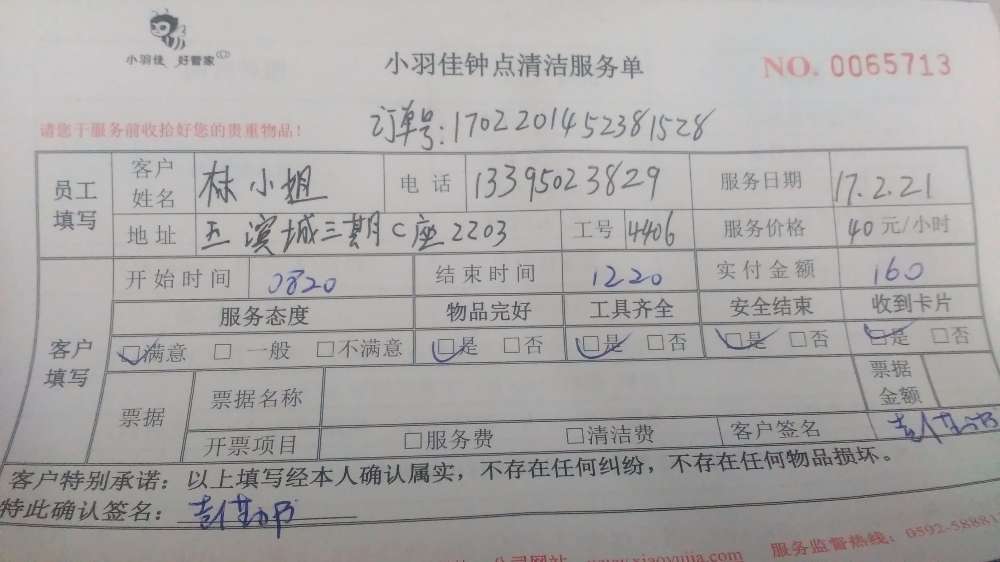 小羽佳 好管家
小羽佳钟点清洁服务单
NO. 0065713
请您于服务前收拾好您的贵重物品!
订单号:1702201452381528
员工填写 客户姓名 林小姐 电话 13395023829 服务日期 17.2.21
地址 五滨城三期C座2203 工号 4406 服务价格 40元/小时
客户填写 开始时间 0820 结束时间 1220 实付金额 160
服务态度 物品完好 工具齐全 安全结束 收到卡片
□满意 □一般 □不满意 □是 □否 □是 □否 □是 □否 □是 □否
票据 票据名称 票据金额
开票项目 □服务费 □清洁费 客户签名
客户特别承诺:以上填写经本人确认属实,不存在任何纠纷,不存在任何物品损坏。
特此确认签名:
公司网站 www.xiaoyujia.com 服务监督热线:0592-58881